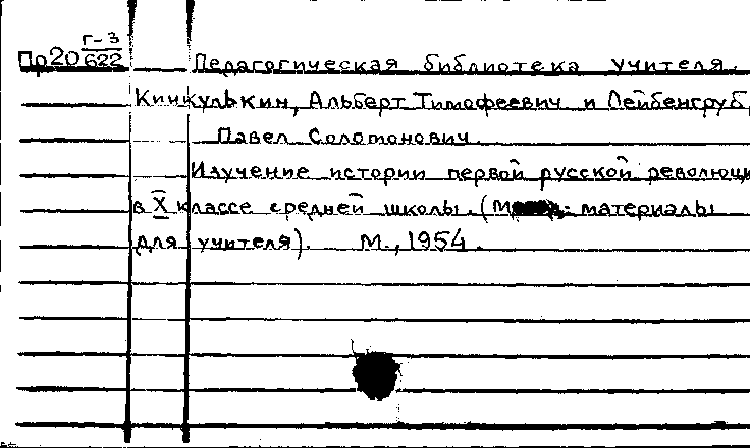 Пр20 Г-3/622 Педагогическая библиотека учителя.
Кинкулькин, Альберт Тимофеевич и Лейбенгруб,
Павел Соломонович.
Изучение истории первой русской революци
в X классе средней школы. (М материалы
для учителя). М., 1954.